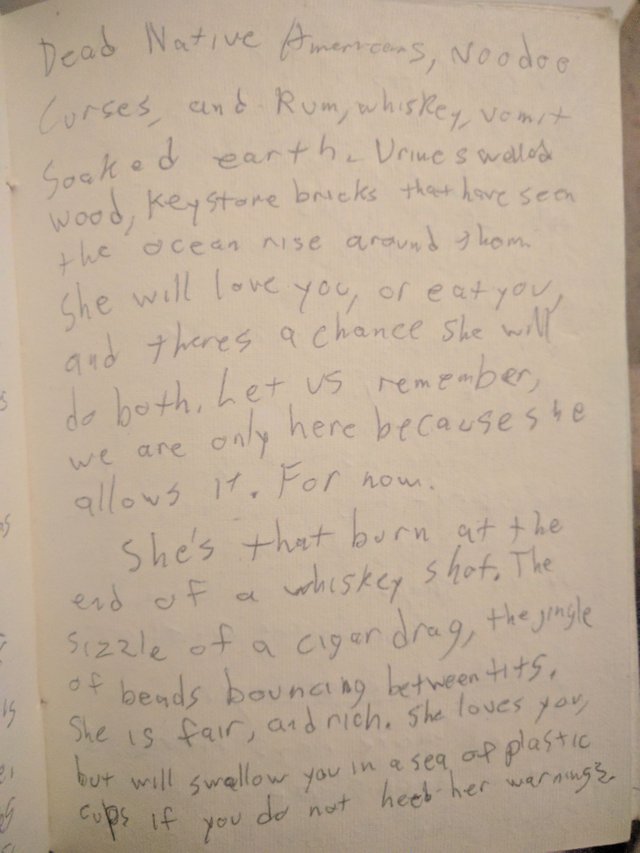 Dead Native Americans, Noodoo
Curses, and Rum, whiskey, vomit
Soaked earth. Urine swelled
wood, Keystone bricks that have seen
the ocean rise around them.
She will love you, or eat you,
and theres a chance she will
do both. Let us remember,
we are only here because she
allows it. For now.
She's that burn at the
end of a whiskey shot. The
sizzle of a cigar drag, the jingle
of beads bouncing between tits.
She is fair, and rich. She loves you,
but will swallow you in a sea of plastic
cups if you do not heeb her warnings.